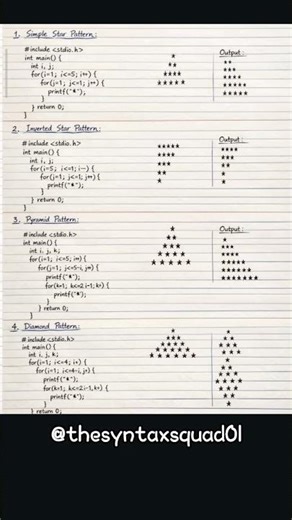 1. Simple Star Pattern:
#include <stdio.h>
int main() {
int i, j;
for(i=1; i<=5; i++) {
for(j=1; j<=1; j++) {
printf("*");
}
} return 0;
}
Output:
*
**
****
*****
**
***
****
*****
******
2. Inverted Star Pattern:
#include <stdio.h>
int main() {
int i, j;
for(i=5; i<=1; i--) {
for(j=1; j<=1; j++) {
printf("*");
}
} return 0;
}
Output:
*****
****
***
**
*
****
***
**
*
3. Pyramid Pattern:
#include <stdio.h>
int main() {
int i, j, k;
for(i=1; i<=5; i++) {
for(j=1; j<=5-i, j++) {
printf("*");
for(k=1; k<=2 i-1; k++) {
printf("*");
}
} return 0;
}
Output:
*
**
***
****
*****
*
***
****
*****
******
*******
4. Diamond Pattern:
#include <stdio.h>
int main() {
int i, j, k;
for(i=1; i<=4; i+) {
for(i=1; i<=4-i, j+) {
printf("*");
for(k=1; k<=2 i-1, k+) {
printf("*");
}
} return 0;
@thesyntaxsquad01